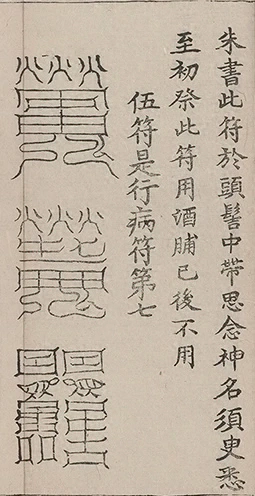 朱書此符於頭髻中帶思念神名須史悉
至初祭此符用酒脯已後不用
伍符是行病符第七